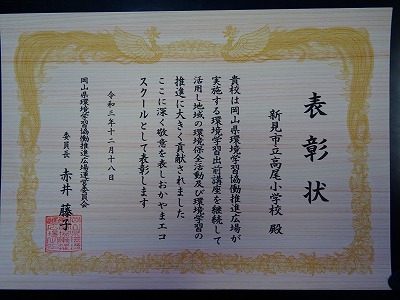 表彰状
新見市立高尾小学校 殿
貴校は岡山県環境学習協働推進広場が
実施する環境学習出前講座を継続して
活用し地域の環境保全活動及び環境学習の
推進に大きく貢献されました
ここに深く敬意を表しおかやまエコ
スクールとして表彰します
令和三年十二月十八日
岡山県環境学習協働推進広場運営委員会
委員長 赤井 藤子